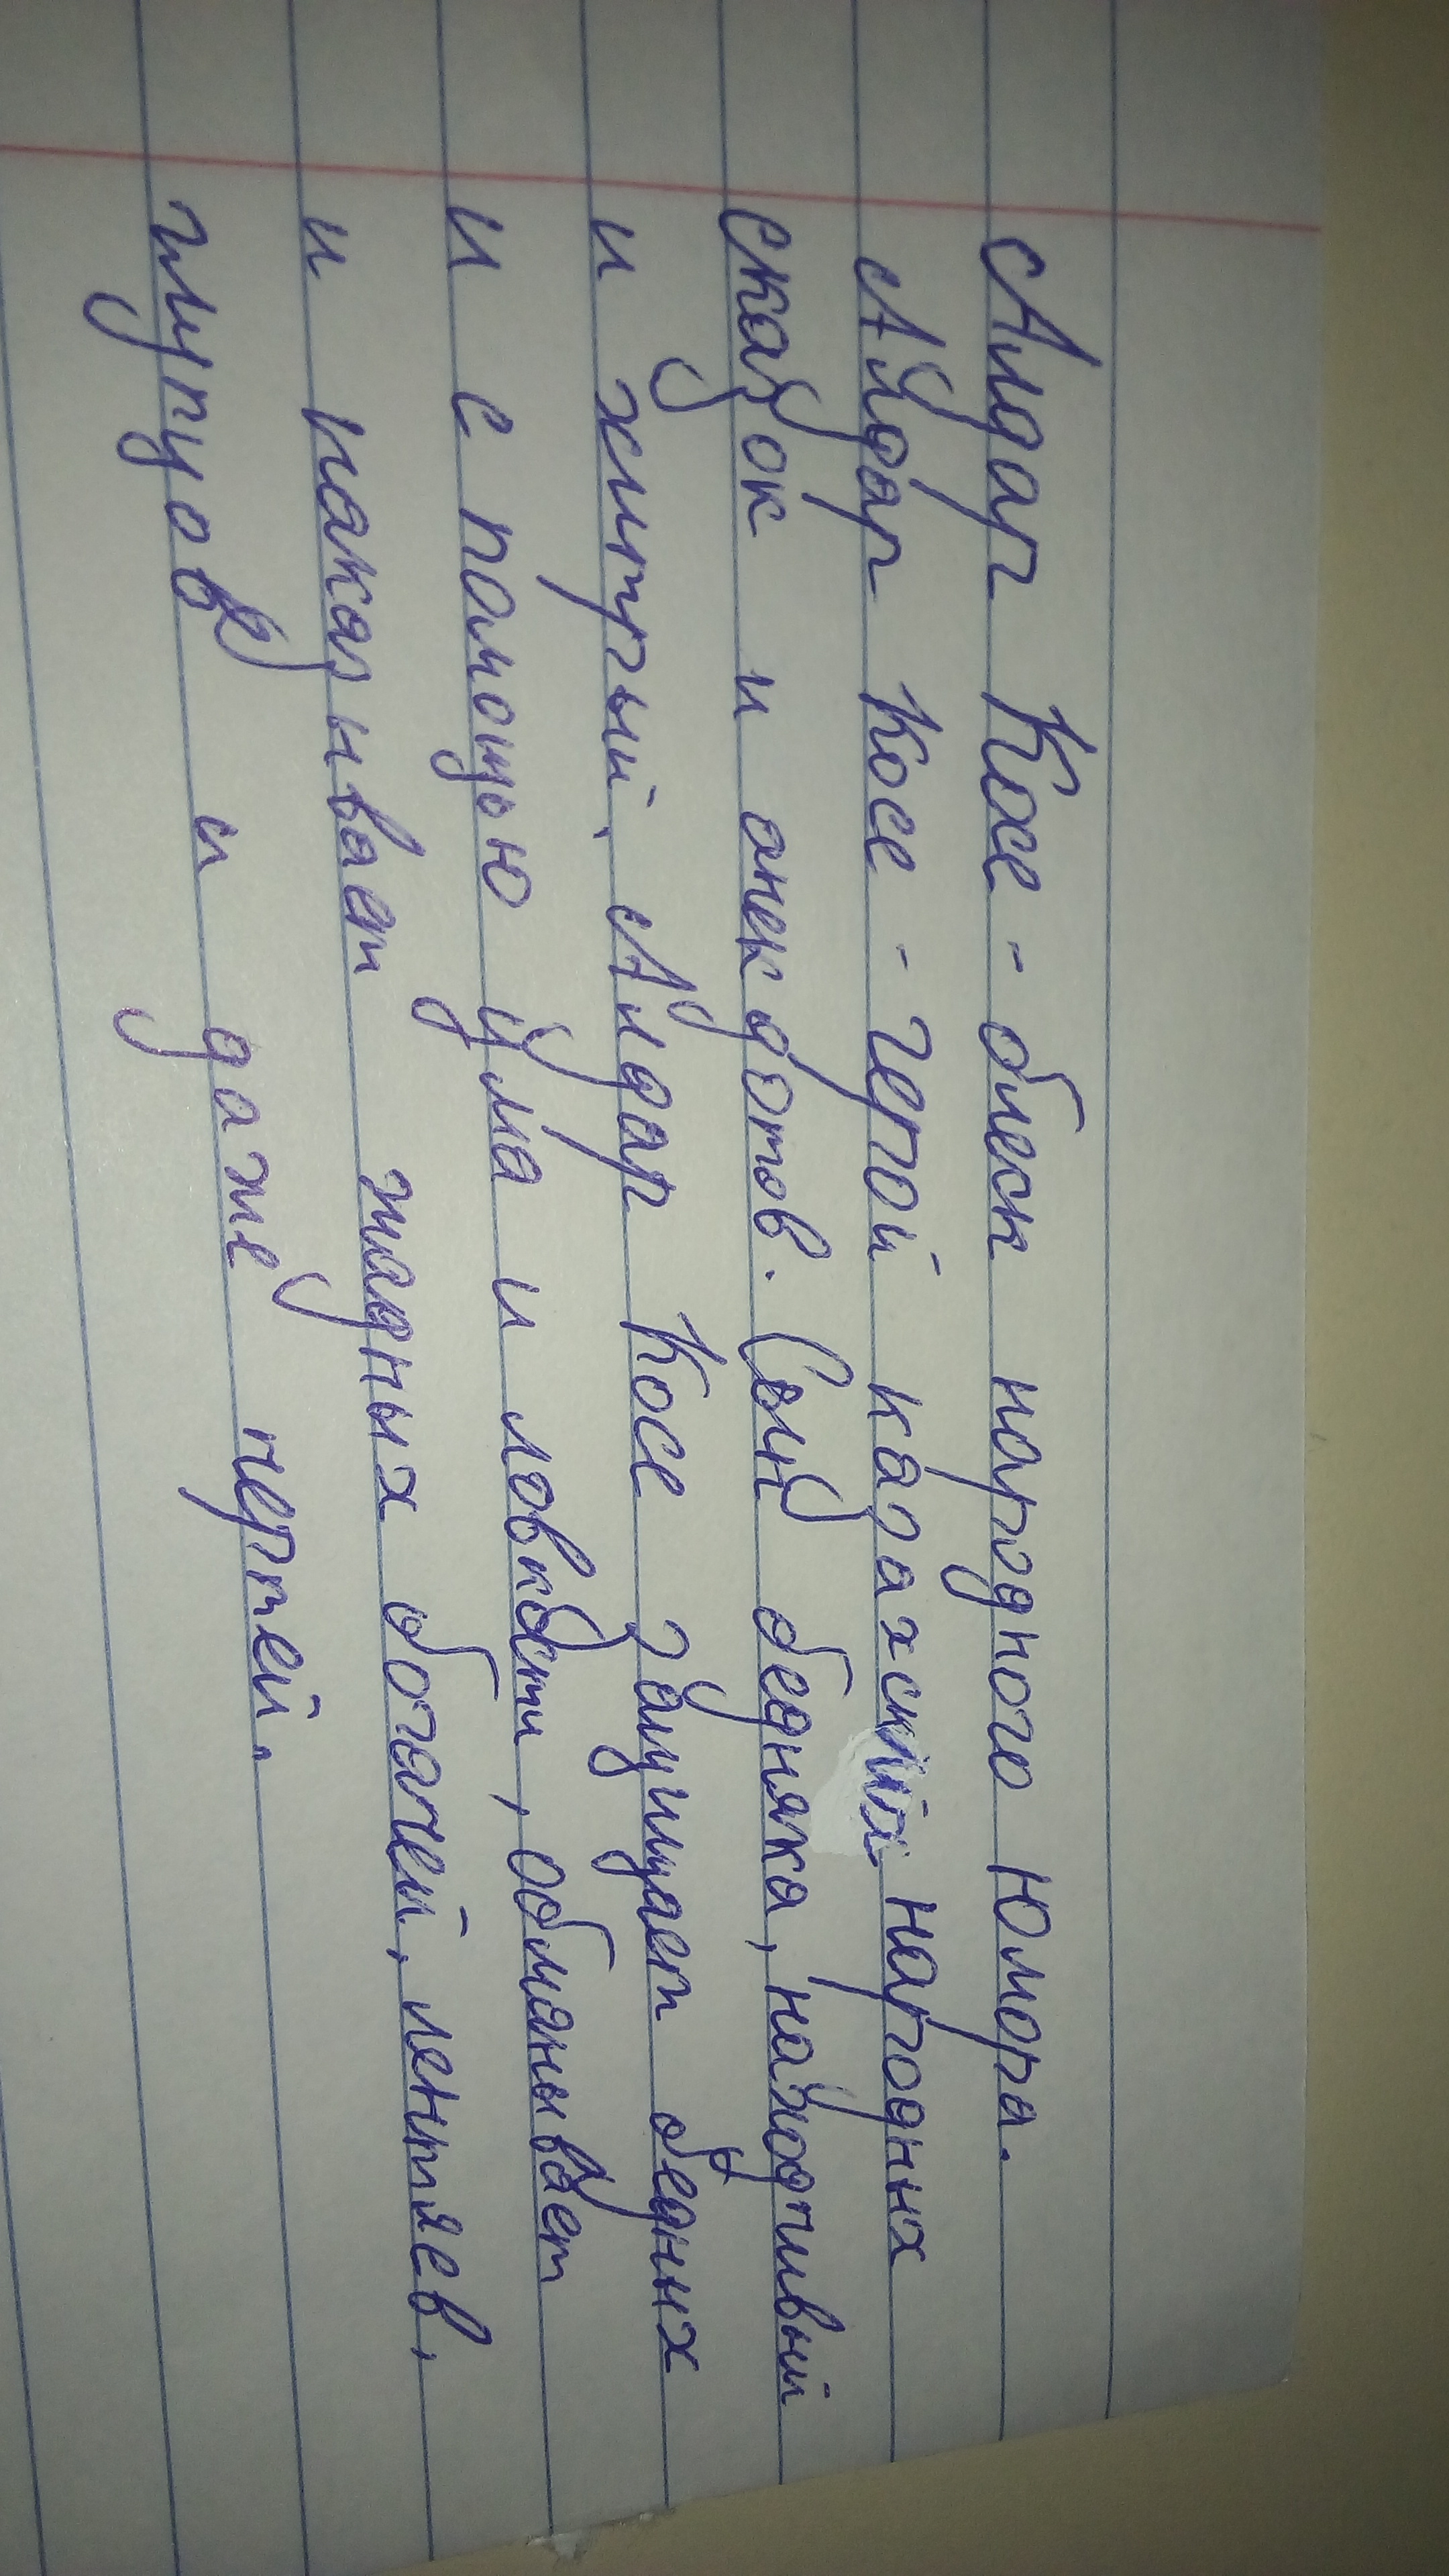 Алдар Косе - блеск народного юмора.
Алдар Косе - герой казахских народных
сказок и анекдотов. Сын бедняка, находчивый
и хитрый, Алдар Косе защищает бедных
и с помощью ума и ловкости, обманывает
и наказывает жадных богачей, лентяев,
глупцов и даже чертей.